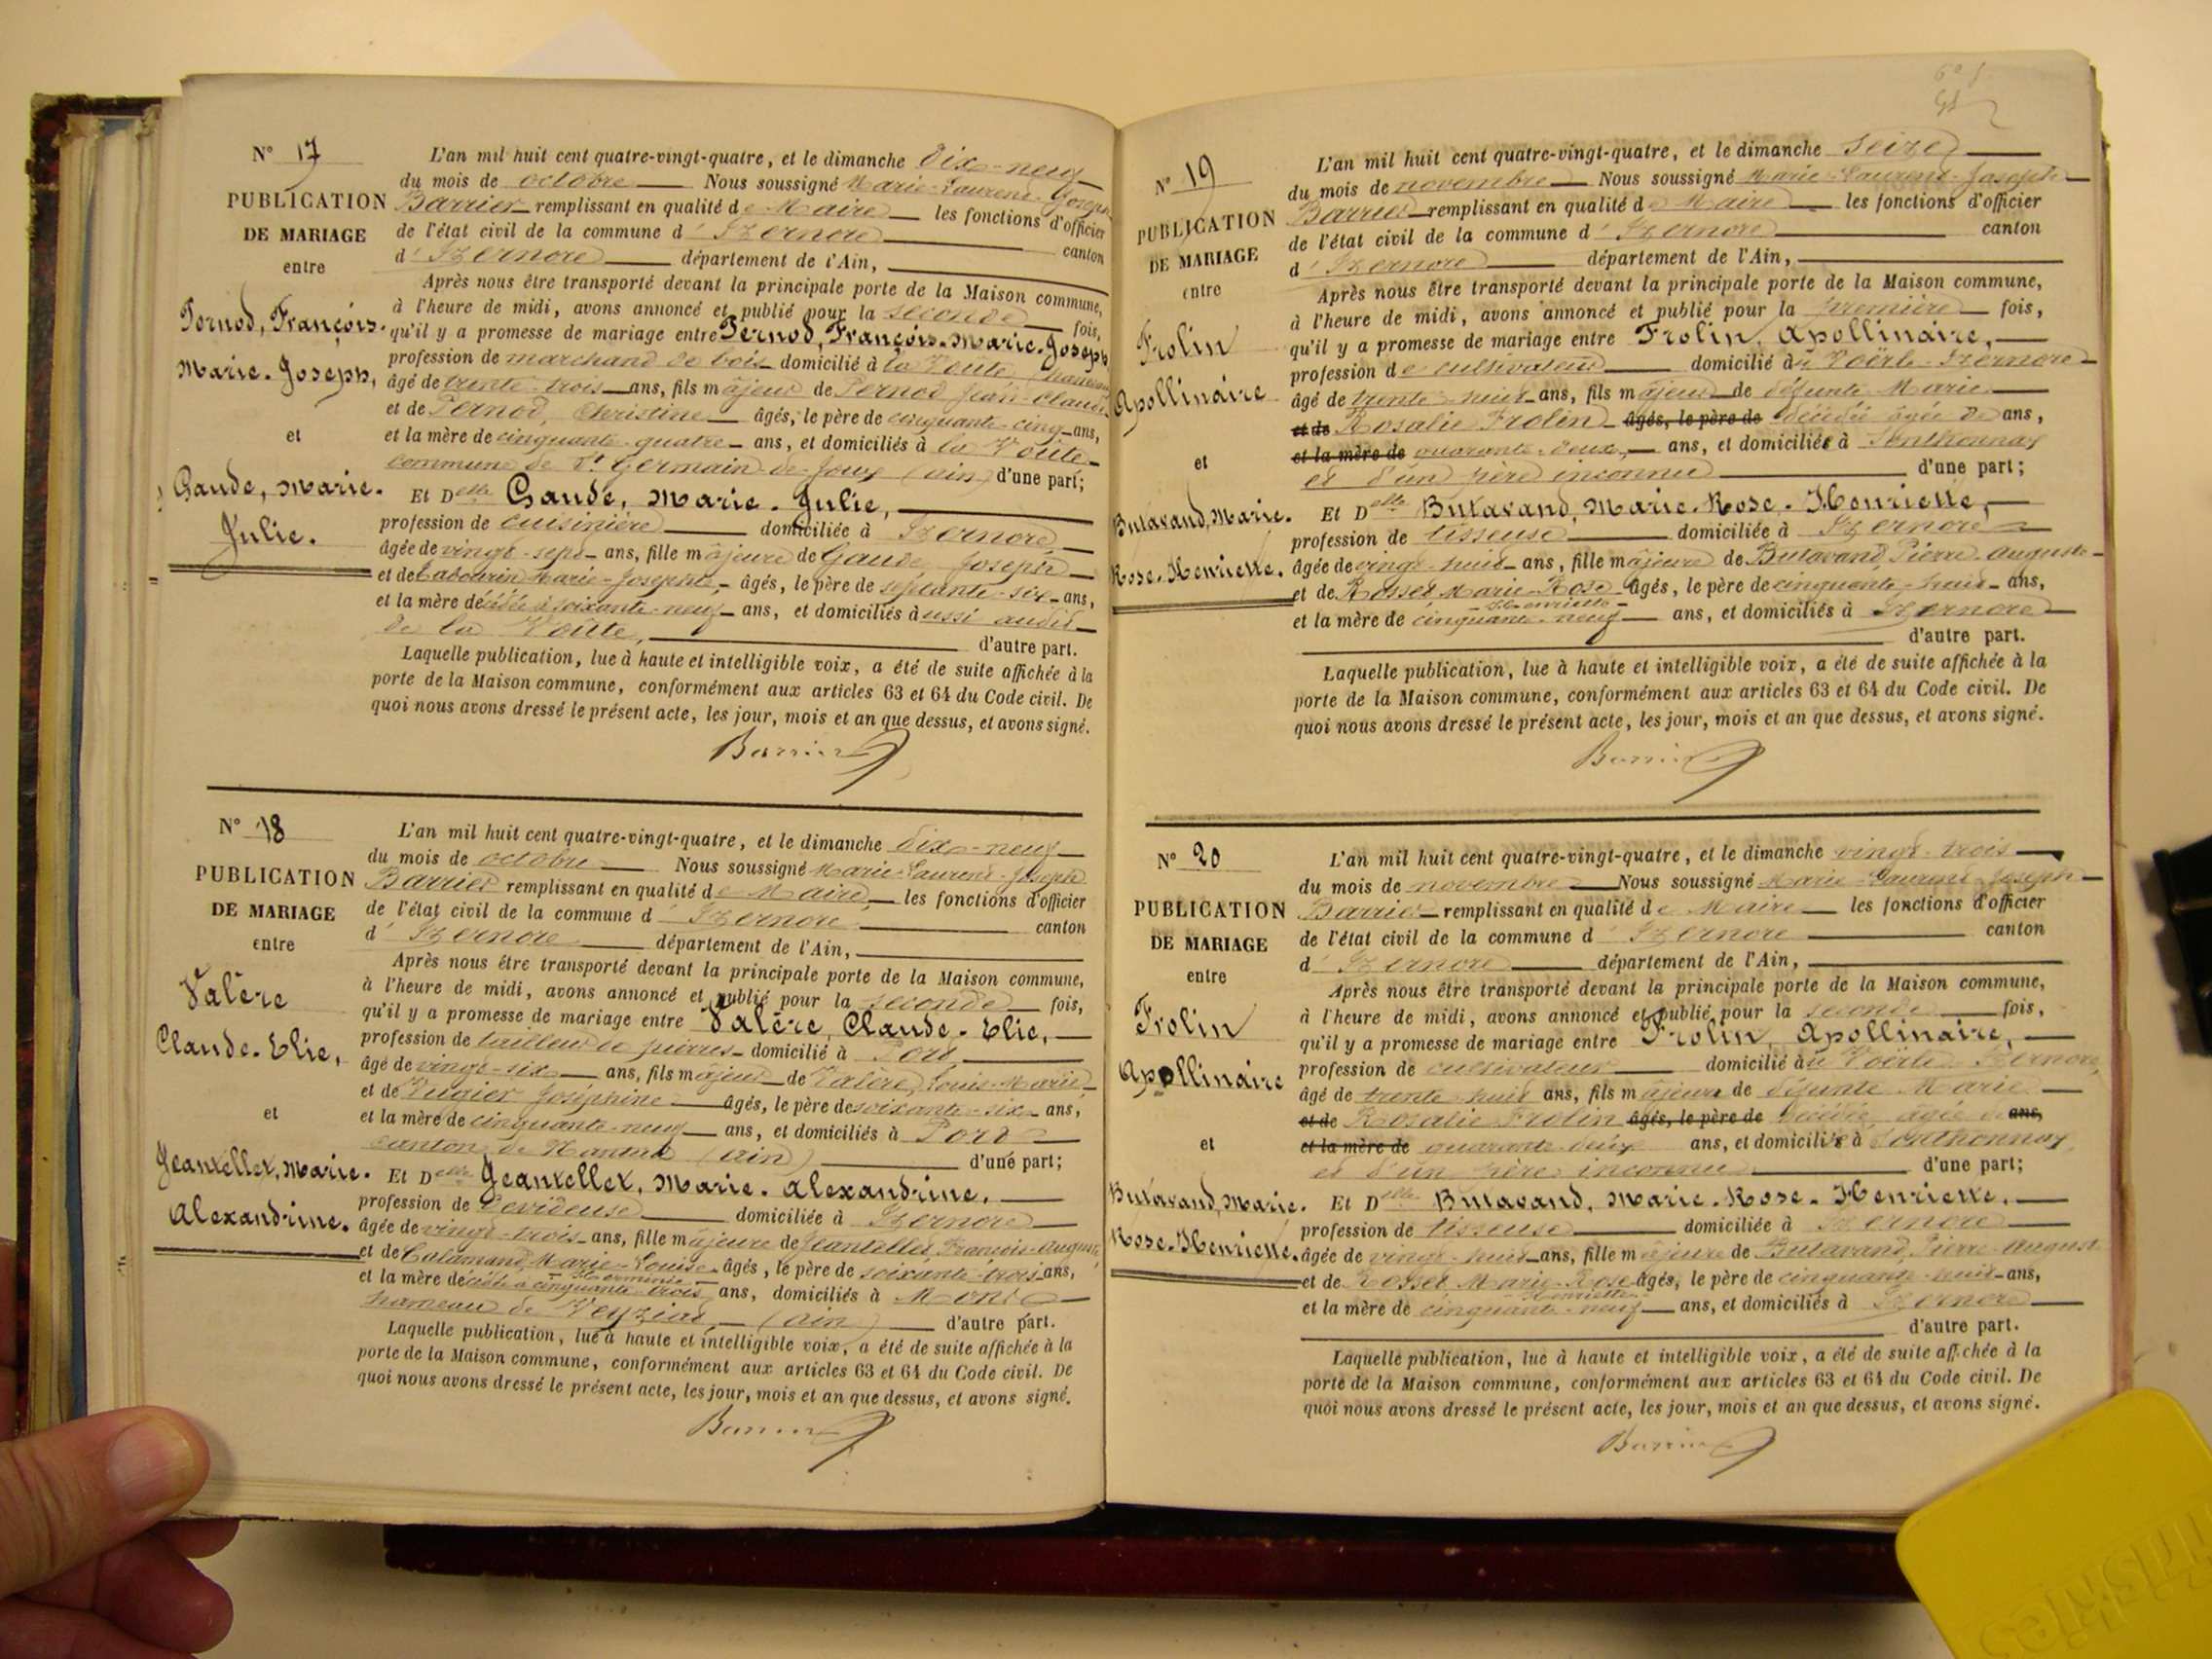 N° 17
PUBLICATION
DE MARIAGE
entre
Pernod, François-
Marie-Joseph,
et
Gaude, Marie-
Julie.
L'an mil huit cent quatre-vingt-quatre, et le dimanche dix-neuf
du mois de octobre Nous soussigné Marie-Laurent-Joseph
Barrier remplissant en qualité de Maire les fonctions d'officier
de l'état civil de la commune d'Izernore canton
d'Izernore département de l'Ain,
Après nous être transporté devant la principale porte de la Maison commune,
à l'heure de midi, avons annoncé et publié pour la seconde fois,
qu'il y a promesse de mariage entre Pernod, François-Marie-Joseph
profession de marchand de bois domicilié à la Voûte (hameau
âgé de trente-trois ans, fils majeur de Pernod Jean-Claude
et de Pernod, Christine âgés, le père de cinquante-cinq ans,
et la mère de cinquante-quatre ans, et domiciliés à la Voûte
commune de St Germain-de-Joux (ain) d'une part;
Et Delle Gaude, Marie-Julie,
profession de cuisinière domiciliée à Izernore
âgée de vingt-sept ans, fille majeure de Gaude Joseph
et de Marie-Josephte, âgés, le père de septante-six ans,
et la mère décédée à soixante-neuf ans, et domiciliés aussi audit
de la Voûte, d'autre part.
Laquelle publication, lue à haute et intelligible voix, a été de suite affichée à la
porte de la Maison commune, conformément aux articles 63 et 64 du Code civil. De
quoi nous avons dressé le présent acte, les jour, mois et an que dessus, et avons signé.
Barrier
N° 18
PUBLICATION
DE MARIAGE
entre
Valère
Claude-Elie,
et
Jeantellet, Marie-
Alexandrine.
L'an mil huit cent quatre-vingt-quatre, et le dimanche dix-neuf
du mois de octobre Nous soussigné Marie-Laurent-Joseph
Barrier remplissant en qualité de Maire les fonctions d'officier
de l'état civil de la commune d'Izernore canton
d'Izernore département de l'Ain,
Après nous être transporté devant la principale porte de la Maison commune,
à l'heure de midi, avons annoncé et publié pour la seconde fois,
qu'il y a promesse de mariage entre Valère, Claude-Elie,
profession de tailleur de pierres domicilié à Port
âgé de vingt-six ans, fils majeur de Valère, Louis-Marie
et de Joséphine âgés, le père de soixante-six ans,
et la mère de cinquante-neuf ans, et domiciliés à Port
canton de Nantua (ain) d'une part;
Et Delle Jeantellet, Marie-Alexandrine,
profession de Dévideuse domiciliée à Izernore
âgée de vingt-trois ans, fille majeure de Jeantellet, François-Auguste
et de Calamand, Marie-Louise-Herminie âgés, le père de soixante-trois ans,
et la mère décédée à cinquante-trois ans, domiciliés à Mont
hameau de Veyziat, (ain) d'autre part.
Laquelle publication, lue à haute et intelligible voix, a été de suite affichée à la
porte de la Maison commune, conformément aux articles 63 et 64 du Code civil. De
quoi nous avons dressé le présent acte, les jour, mois et an que dessus, et avons signé.
Barrier
N° 19
PUBLICATION
DE MARIAGE
entre
Frolin
Apollinaire
et
Butavand, Marie-
Rose-Henriette.
L'an mil huit cent quatre-vingt-quatre, et le dimanche seize
du mois de novembre Nous soussigné Marie-Laurent-Joseph
Barrier remplissant en qualité de Maire les fonctions d'officier
de l'état civil de la commune d'Izernore canton
d'Izernore département de l'Ain,
Après nous être transporté devant la principale porte de la Maison commune,
à l'heure de midi, avons annoncé et publié pour la première fois,
qu'il y a promesse de mariage entre Frolin, Apollinaire,
profession de cultivateur domicilié à Voërle-Izernore
âgé de trente-huit ans, fils majeur de défunte Marie
et de Rosalie Frolin âgés, le père de décédée âgée de ans,
et la mère de quarante-deux ans, et domiciliée à Sonthonnax
et d'un père inconnu d'une part;
Et Delle Butavand, Marie-Rose-Henriette,
profession de tisseuse domiciliée à Izernore
âgée de vingt-huit ans, fille majeure de Butavand, Pierre-Auguste
et de Rosset Marie-Rose-Henriette âgés, le père de cinquante-huit ans,
et la mère de cinquante-neuf ans, et domiciliés à Izernore
d'autre part.
Laquelle publication, lue à haute et intelligible voix, a été de suite affichée à la
porte de la Maison commune, conformément aux articles 63 et 64 du Code civil. De
quoi nous avons dressé le présent acte, les jour, mois et an que dessus, et avons signé.
Barrier
N° 20
PUBLICATION
DE MARIAGE
entre
Frolin
Apollinaire
et
Butavand, Marie-
Rose-Henriette.
L'an mil huit cent quatre-vingt-quatre, et le dimanche vingt-trois
du mois de novembre Nous soussigné Marie-Laurent-Joseph
Barrier remplissant en qualité de Maire les fonctions d'officier
de l'état civil de la commune d'Izernore canton
d'Izernore département de l'Ain,
Après nous être transporté devant la principale porte de la Maison commune,
à l'heure de midi, avons annoncé et publié pour la seconde fois,
qu'il y a promesse de mariage entre Frolin, Apollinaire,
profession de cultivateur domicilié à Voërle Izernore,
âgé de trente-huit ans, fils majeur de défunte Marie
et de Rosalie Frolin âgés, le père de décédée âgée de ans,
et la mère de quarante-deux ans, et domiciliée à Sonthonnax
et d'un père inconnu d'une part;
Et Delle Butavand, Marie-Rose-Henriette,
profession de tisseuse domiciliée à Izernore
âgée de vingt-huit ans, fille majeure de Butavand, Pierre-Auguste
et de Rosset Marie-Rose-Henriette âgés, le père de cinquante-huit ans,
et la mère de cinquante-neuf ans, et domiciliés à Izernore
d'autre part.
Laquelle publication, lue à haute et intelligible voix, a été de suite affichée à la
porte de la Maison commune, conformément aux articles 63 et 64 du Code civil. De
quoi nous avons dressé le présent acte, les jour, mois et an que dessus, et avons signé.
Barrier